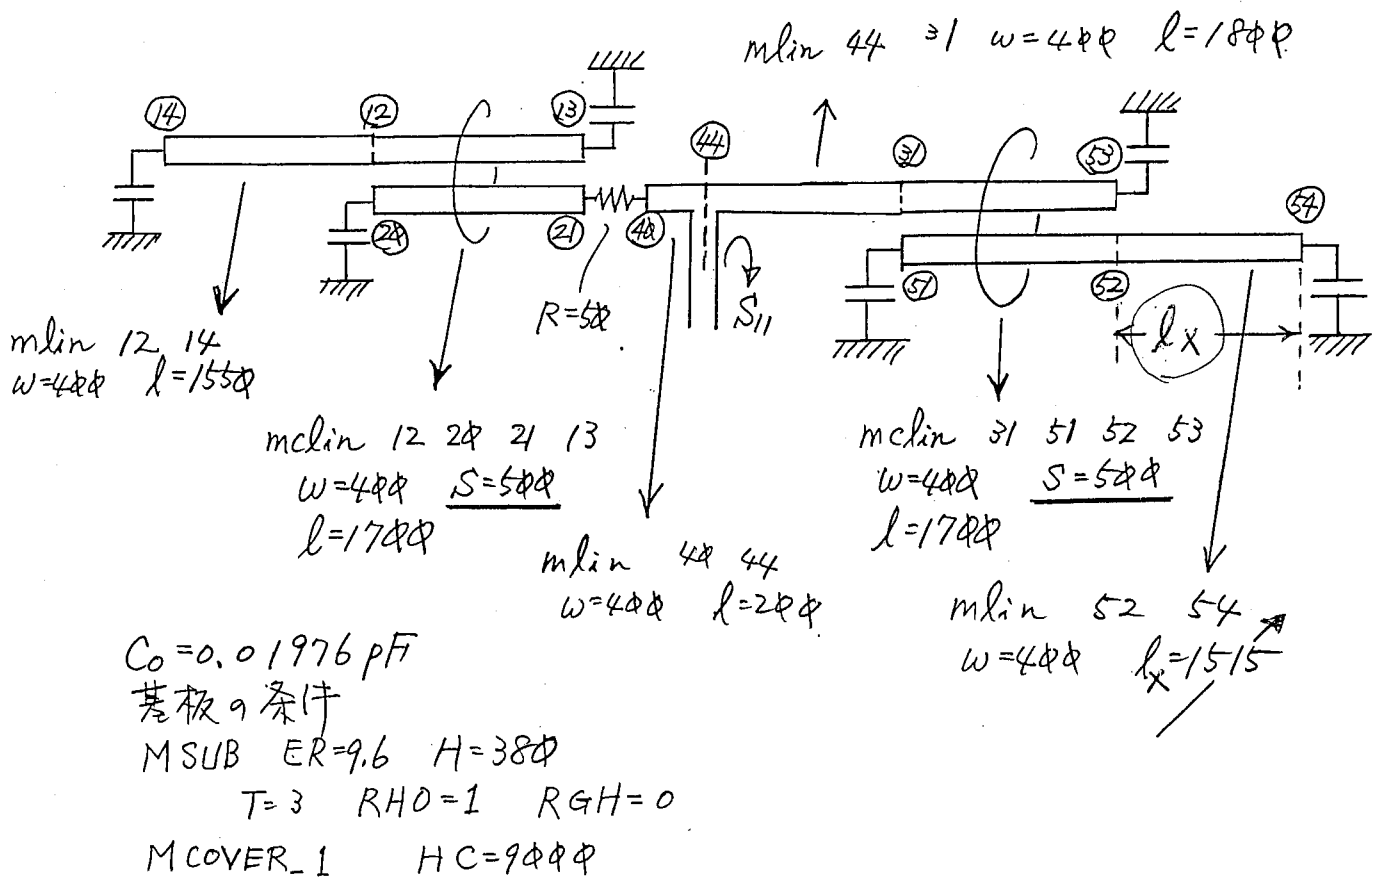 mlin 44 31 w=400 l=1800
14
12
13
44
31
53
54
20
21
40
51
52
R=50
S11
lx
mlin 12 14
w=400 l=1550
mclin 12 20 21 13
w=400 S=500
l=1700
mclin 31 51 52 53
w=400 S=500
l=1700
mlin 40 44
w=400 l=200
mlin 52 54
w=400 lx=1515
Co=0.01976pF
基板の条件
MSUB ER=9.6 H=380
T=3 RHO=1 RGH=0
MCOVER_1 HC=9000